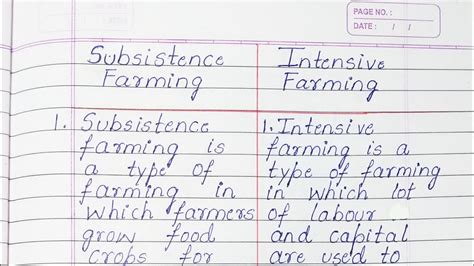 PAGE NO.:
DATE: / /
Subsistence Farming
Intensive Farming
1. Subsistence
farming is
a type of
farming in
which farmers
grow food
crops for
1. Intensive
farming is a
type of farming
in which lot
of labour
and capital
are used to